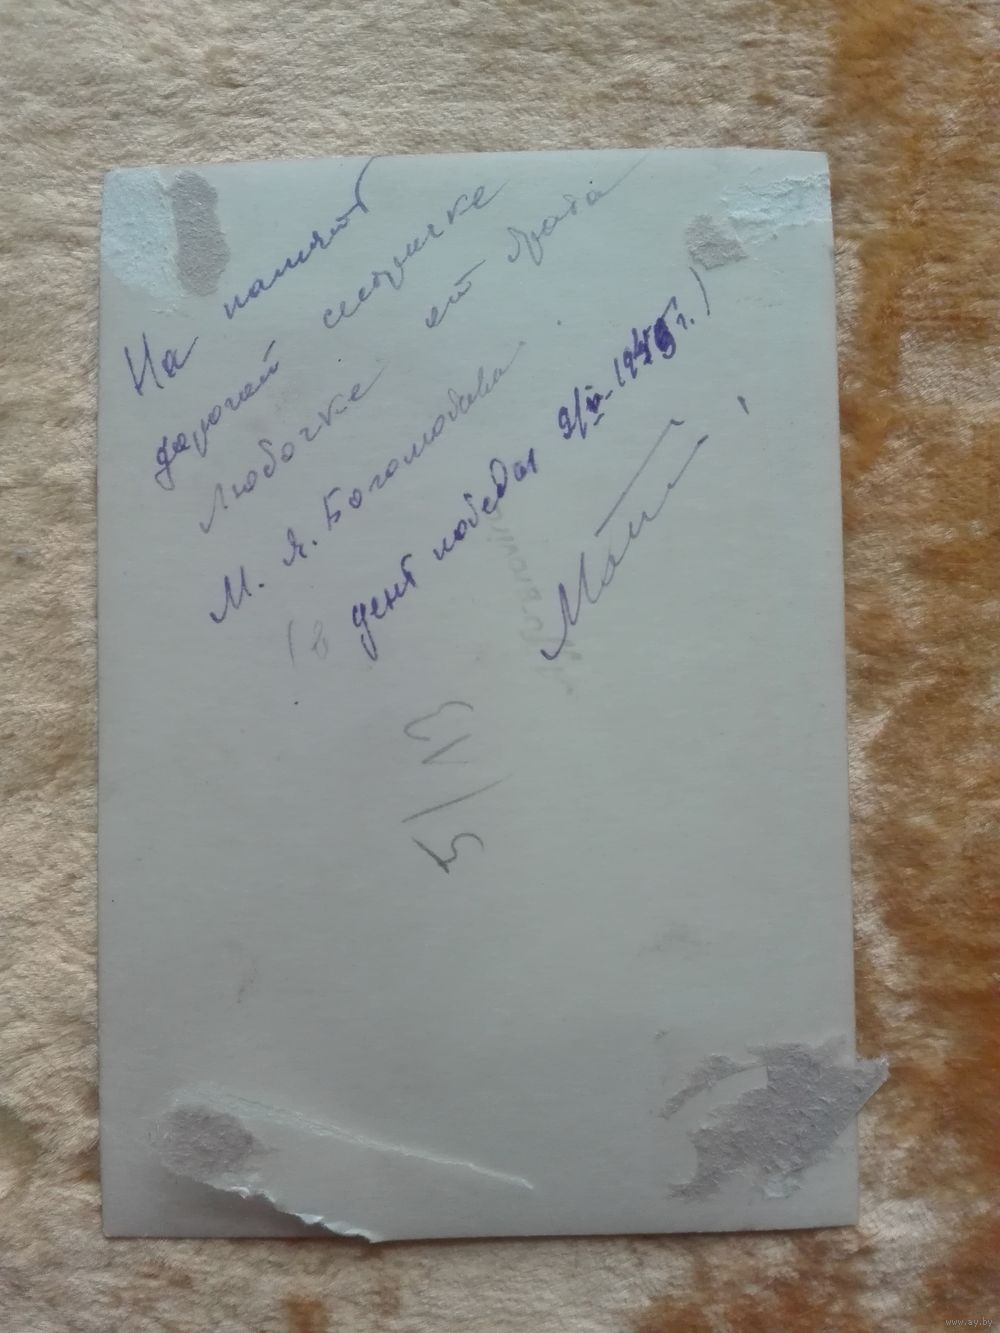 На память
дорогой сестричке
Любочке от брата
М. Я. Боголюбова.
(в день победы 9/V-1945г.)
www.ay.by